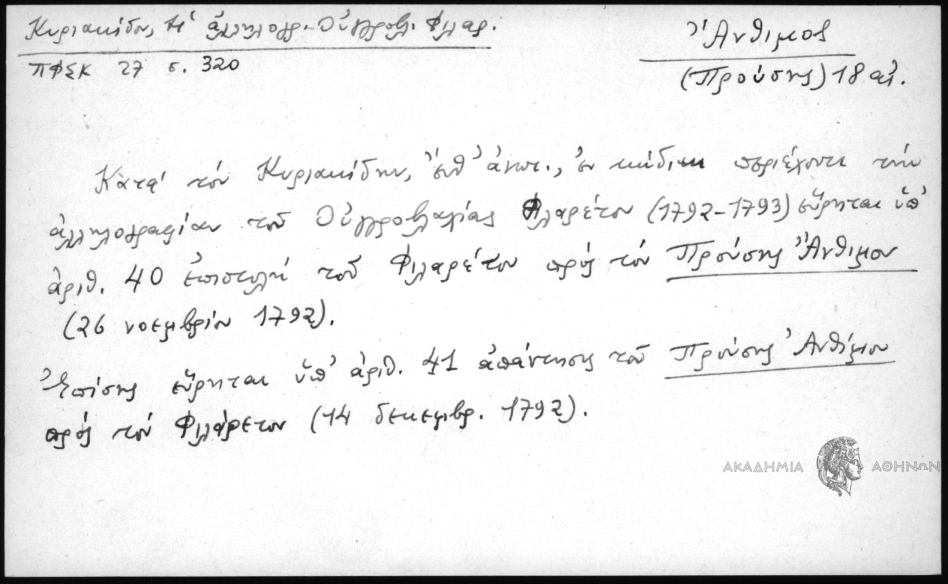 Κυριακίδου, Ἡ ἀλληλογρ. Οὑγγροβλ. Φιλαρ.
ΠΦΣΚ 27 σ. 320
Ἄνθιμος
(Προύσης) 18 αἰ.
Κατά τόν Κυριακίδην, ἔνθ' ἀνωτ., ἐν κώδικι περιέχοντι τήν
ἀλληλογραφίαν τοῦ Οὑγγροβλαχίας Φιλαρέτου (1792-1793) εὕρηται ὑπ'
ἀριθ. 40 ἐπιστολή τοῦ Φιλαρέτου πρός τόν Προύσης Ἄνθιμον
(26 νοεμβρίου 1792).
Ἐπίσης εὕρηται ὑπ' ἀριθ. 41 ἀπάντησις τοῦ Προύσης Ἀνθίμου
πρός τόν Φιλάρετον (14 δεκεμβρ. 1792).
ΑΚΑΔΗΜΙΑ ΑΘΗΝΩΝ